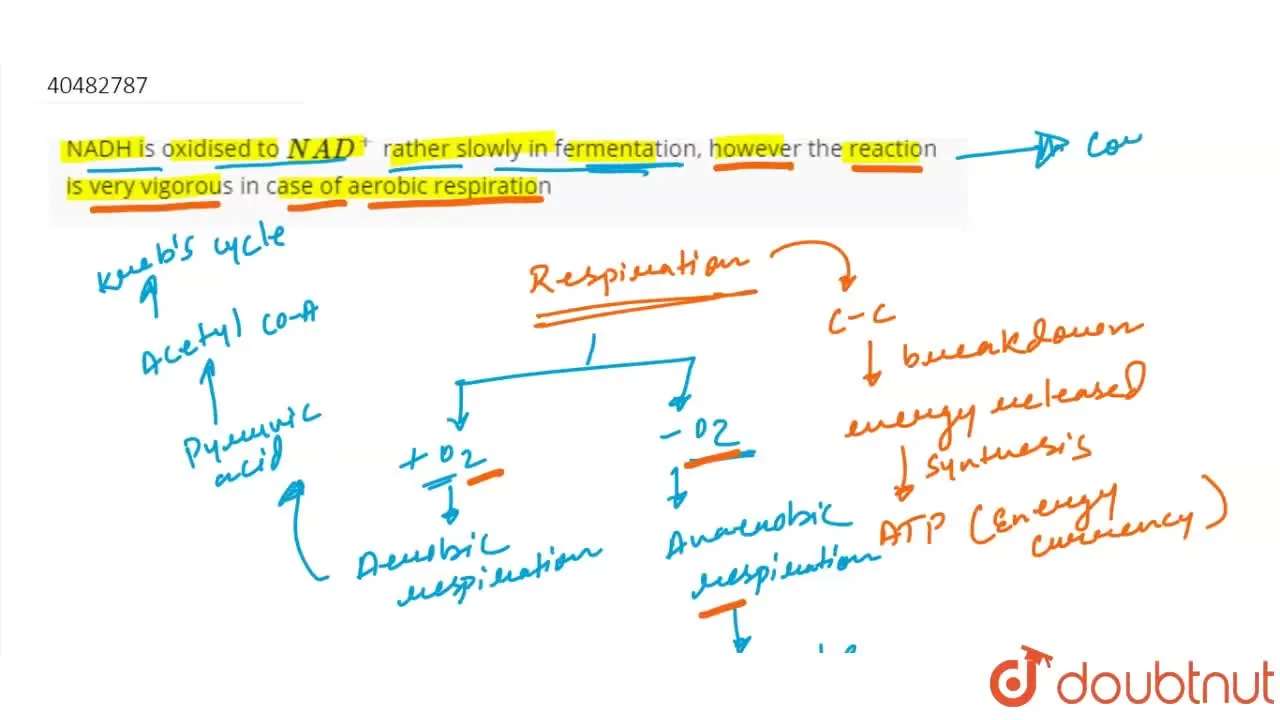 40482787
NADH is oxidised to NAD⁺ rather slowly in fermentation, however the reaction
is very vigorous in case of aerobic respiration
Kreb's cycle
Acetyl co-A
Pyruvic
acid
Respiration
+ O2
Aerobic
respiration
- O2
Anaerobic
respiration
C-C
breakdown
energy released
synthesis
ATP (Energy
currency)
doubtnut